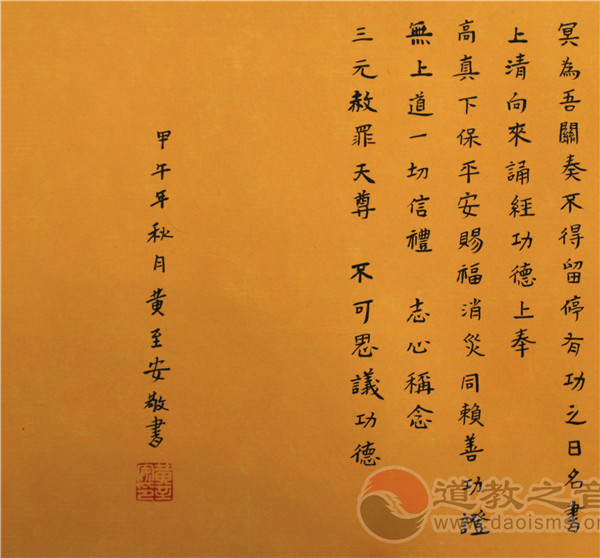 冥為吾關奏不得留停有功之日名書
上清向來誦經功德上奉
高真下保平安賜福消災同賴善功證
無上道一切信禮 志心稱念
三元赦罪天尊 不可思議功德
甲午年秋月黃至安敬書
道教之音
www.daoisms.com